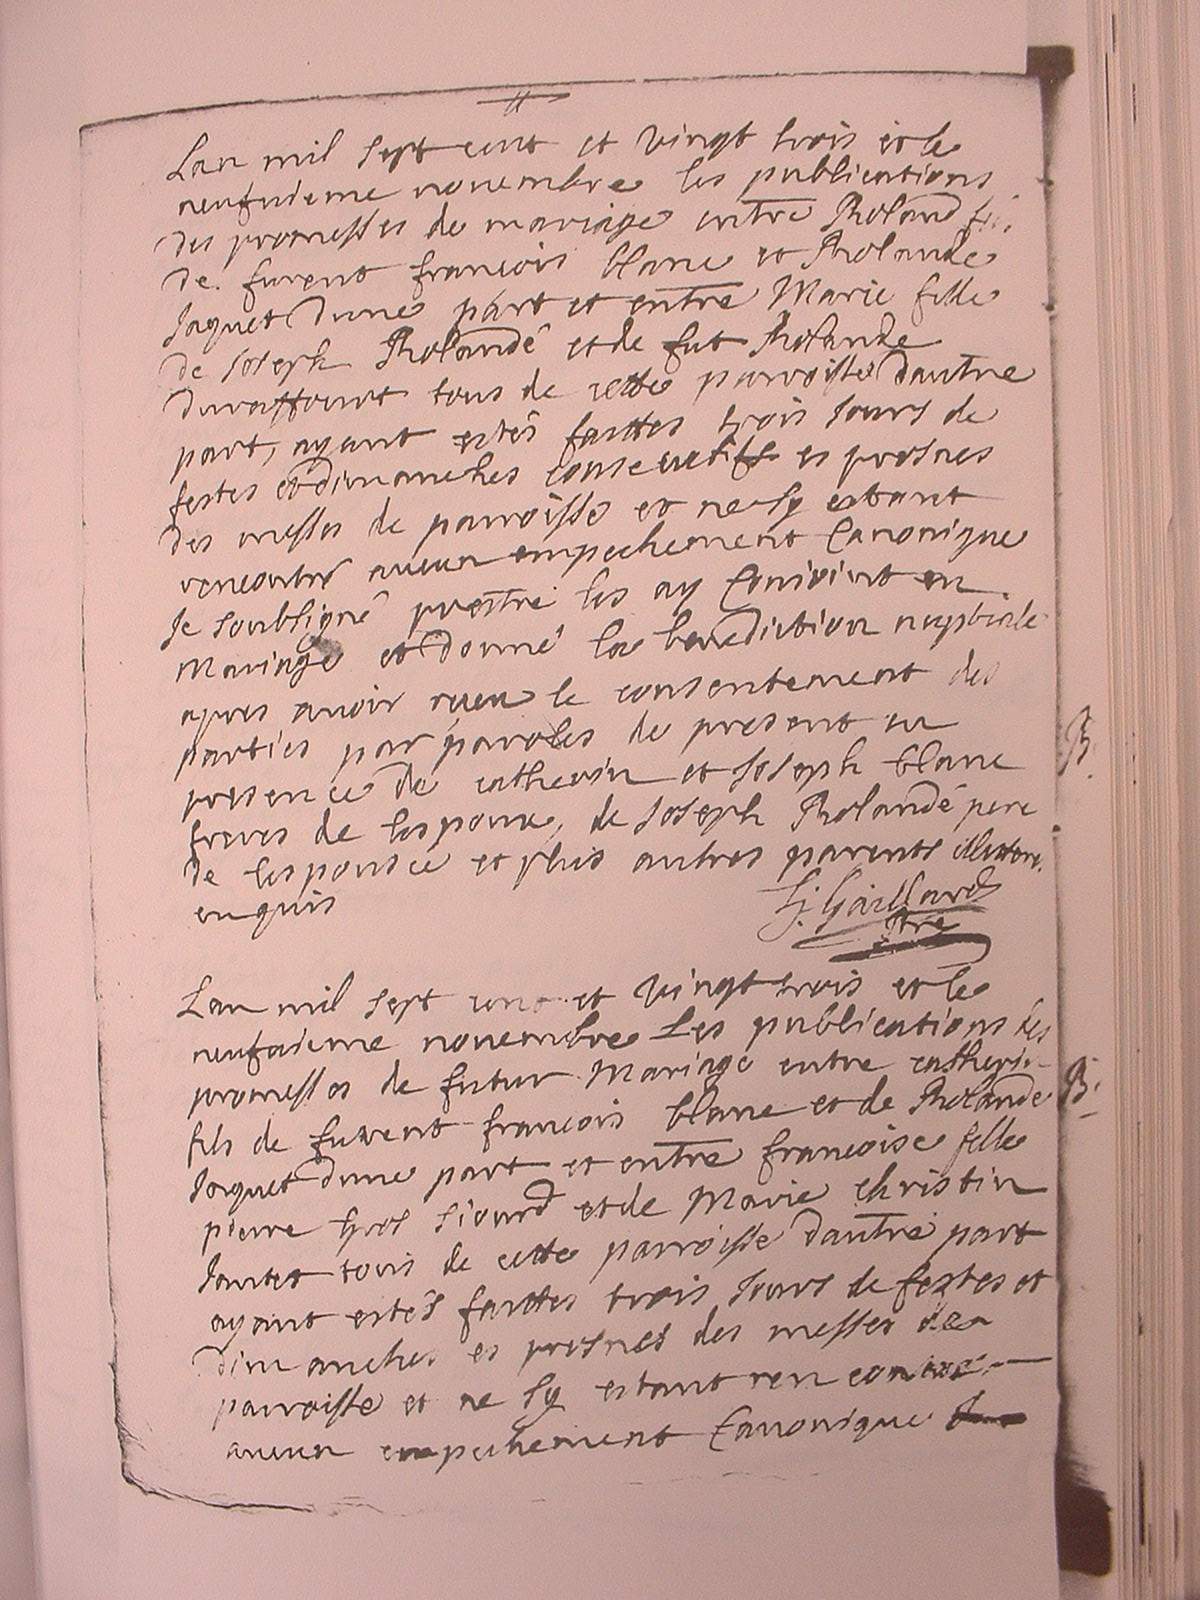 Lan mil sept cent et vingt trois et le
neufvieme novembre les publications
des promesses de mariage entre Rholand fils
de furent francois blanc et Rholande
Jaquet dune part et entre Marie fille
de Joseph Rholandé et de fut Rholande
Durastouut tous de cette parroisse dautre
part, ayant estés faittes trois Jours de
festes et dimanches consecutifs es prosnes
des messes de parroisse et ne sy estant
rencontré aucun empechement Canonique
Je soubsigné prestre les ay Conjoint en
Mariage et donné la benediction nuptiale
apres avoir receu le consentement des
parties par paroles de present en
presence de catherin et Joseph blanc
freres de lespoux, de Joseph Rholandé pere
de lespousée et plus autres parents illitere.
enquis
J. Gaillard
Ptre
Lan mil sept cent et vingt trois et le
neufvieme novembre Les publications des
promesses de futur Mariage entre catherin
fils de furent francois blanc et de Rholande
Jaquet dune part et entre francoise fille
pierre gros siourd et de Marie christin
Jantet tous de cette parroisse dautre part
ayant estés faittes trois Jours de festes et
dimanches es prosnes des messes de
parroisse et ne sy estant rencontré
aucun empechement Canonique
B.
B.